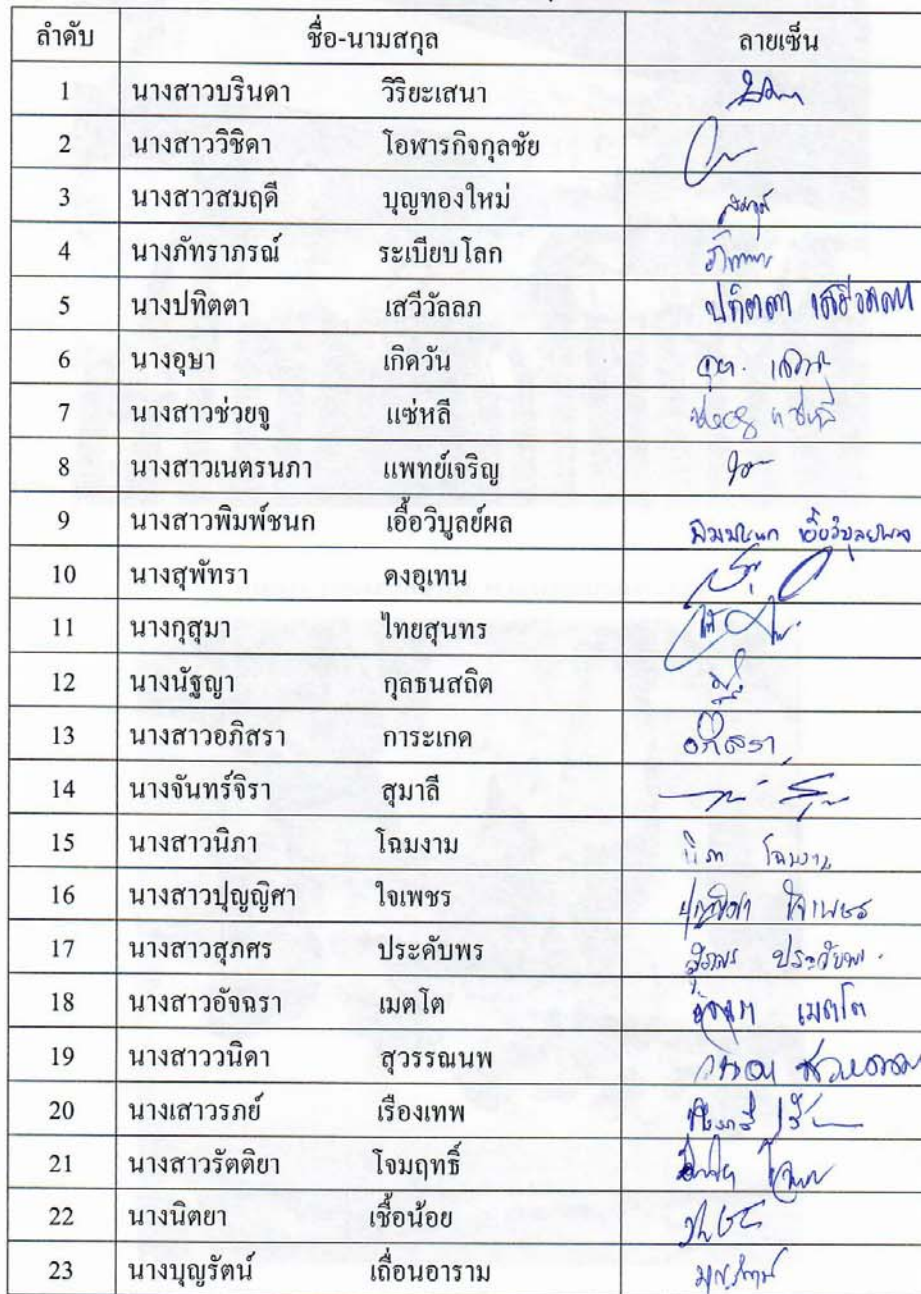 ลำดับ ชื่อ-นามสกุล ลายเซ็น
1 นางสาวบรินดา วิริยะเสนา
2 นางสาววิชิดา โอฬารกิจกุลชัย
3 นางสาวสมฤดี บุญทองใหม่
4 นางภัทราภรณ์ ระเบียบโลก
5 นางปทิตตา เสวีวัลลภ ปทิตตา เสวีวัลลภ
6 นางอุษา เกิดวัน
7 นางสาวช่วยจู แซ่หลี
8 นางสาวเนตรนภา แพทย์เจริญ
9 นางสาวพิมพ์ชนก เอื้อวิบูลย์ผล พิมพ์ชนก เอื้อวิบูลย์ผล
10 นางสุพัทรา คงอุเทน
11 นางกุสุมา ไทยสุนทร
12 นางนัฐญา กุลธนสถิต
13 นางสาวอภิสรา การะเกด อภิสรา
14 นางจันทร์จิรา สุมาลี
15 นางสาวนิภา โฉมงาม นิภา โฉมงาม
16 นางสาวปุญญิศา ใจเพชร ปุญญิศา ใจเพชร
17 นางสาวสุภศร ประดับพร สุภศร ประดับพร
18 นางสาวอัจฉรา เมตโต อัจฉรา เมตโต
19 นางสาววนิดา สุวรรณนพ
20 นางเสาวรภย์ เรืองเทพ
21 นางสาวรัตติยา โจมฤทธิ์
22 นางนิตยา เชื้อน้อย
23 นางบุญรัตน์ เถื่อนอาราม